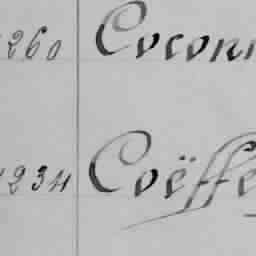 260 Coconn
1234 Coëffe